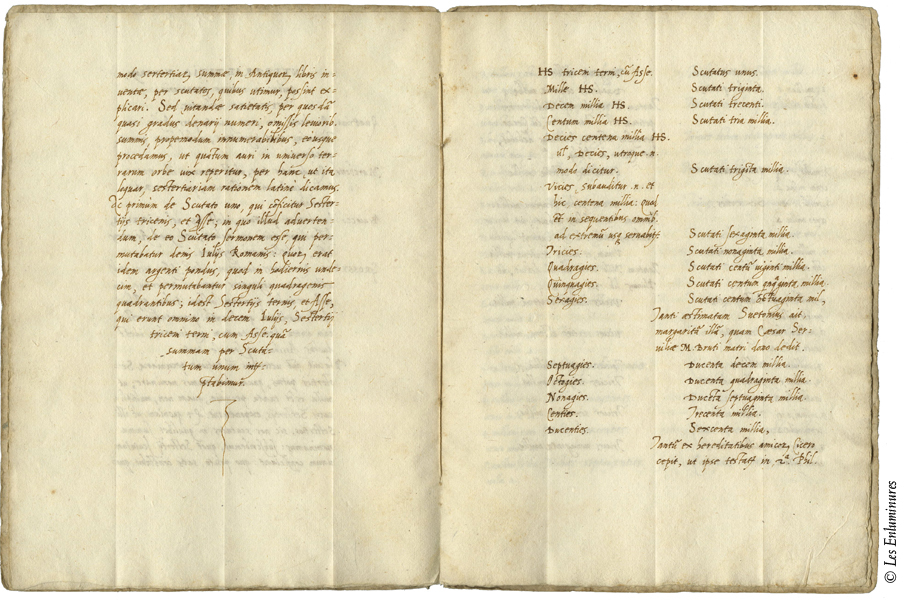 modo sestertiarz summæ, in Antiquorz libris in-
ventæ, per scutatos, quibus utimur, possint ex-
plicari. Sed vitandæ satietatis, per quosdā
quasi gradus denarij numeri, omissis leuiorib.
summis, propemodum innumerabilibus, eousque
procedamus, ut quātum auri in uniuerso ter-
rarum orbe uix reperitur, per hanc, ut ita
loquar, sestertiariam rationem latine dicamus.
Ac primum de Scutato uno, qui cōficitur Sester-
tijs tricenis, et Asse; in quo illud aduerten-
dum, de eo Scutato sermonem esse, qui per-
mutabatur denis Iulijs Romanis: quorz erat
idem argenti pondus, quod in hodiernis unde-
cim, et permutabantur singuli quadragenis
quadrantibus; idest Sestertijs ternis, et Asse,
qui erunt omnino in decem Iulijs, Sestertij
triceni terni, cum Asse. quā
summam per Scuta-
tum unum inte-
rptabimur.
HS triceni terni, cū Asse. Scutatus unus.
Mille HS. Scutati triginta.
Decem millia HS. Scutati trecenti.
Centum millia HS. Scutati tria millia.
Decies centena millia HS.
ul', Decies, utroque .n.
modo dicitur. Scutati trigīta millia.
Vicies, subauditur .n. et
hic, centena millia: quod
et in sequentibus omnib.
ad extremū usq seruabit. Scutati sexaginta millia.
Tricies. Scutati nonaginta millia.
Quadragies. Scutati centū uiginti millia.
Quinquagies. Scutati centum quīquaginta millia.
Sexagies. Scutati centum septuaginta mil,
Tanti æstimatam Suetonius ait
margaritā illā, quam Cæsar Ser-
uiliæ M. Bruti matri dono dedit.
Septuagies. Ducenta decem millia.
Octogies. Ducenta quadraginta millia.
Nonagies. Ducēta septuaginta millia.
Centies. Trecenta millia.
Ducenties. Sexcenta millia,
Tantū ex hereditatibus amicorz Cicero
cepit, ut ipse testatr in 2.ª Phil.
© Les Enluminures